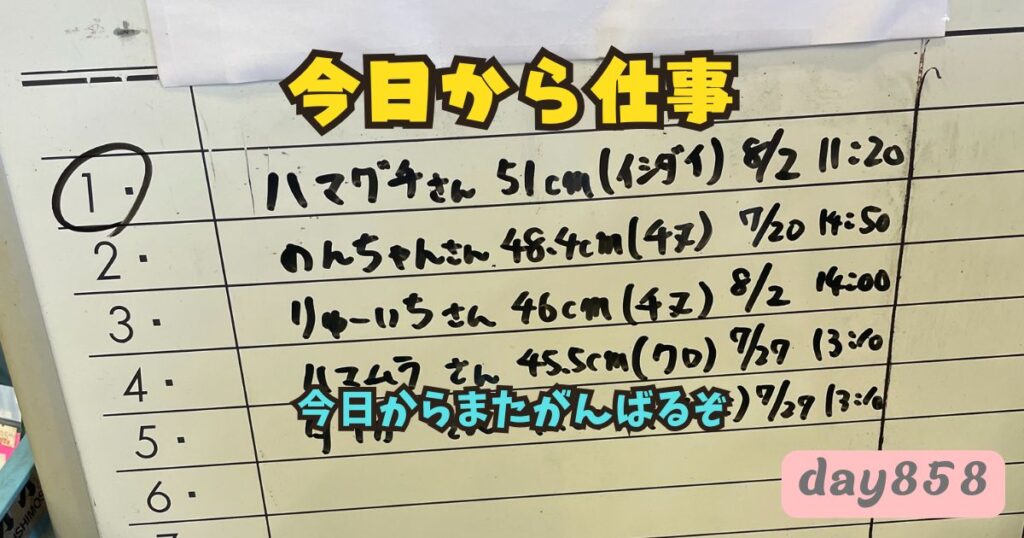 今日から仕事
1. ハマグチさん 51cm(イシダイ) 8/2 11:20
2. のんちゃんさん 48.4cm(チヌ) 7/20 14:50
3. りゅーいちさん 46cm(チヌ) 8/2 14:00
4. ハマムラさん 45.5cm(クロ) 7/27 13:10
今日からまたがんばるぞ
5. ) 7/27 13:10
6.
day858